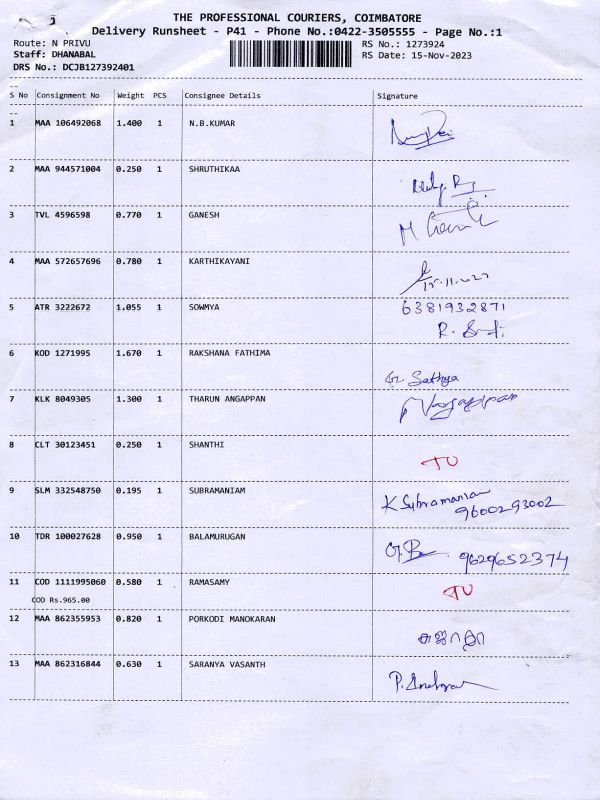 THE PROFESSIONAL COURIERS, COIMBATORE
Delivery Runsheet - P41 - Phone No.:0422-3505555 - Page No.:1
Route: N PRIVU
RS No.: 1273924
Staff: DHANABAL
RS Date: 15-Nov-2023
DRS No.: DCJB127392401
S No Consignment No Weight PCS Consignee Details Signature
1 MAA 106492068 1.400 1 N.B.KUMAR
2 MAA 944571004 0.250 1 SHRUTHIKAA
3 TVL 4596598 0.770 1 GANESH
4 MAA 572657696 0.780 1 KARTHIKAYANI
5 ATR 3222672 1.055 1 SOWMYA 6381932871
6 KOD 1271995 1.670 1 RAKSHANA FATHIMA
Sathya
7 KLK 8049305 1.300 1 THARUN ANGAPPAN
8 CLT 30123451 0.250 1 SHANTHI
TU
9 SLM 332548750 0.195 1 SUBRAMANIAM K Subramanian
9600293002
10 TDR 100027628 0.950 1 BALAMURUGAN
9629652374
11 COD 1111995060 0.580 1 RAMASAMY TU
COD Rs.965.00
12 MAA 862355953 0.820 1 PORKODI MANOKARAN
13 MAA 862316844 0.630 1 SARANYA VASANTH